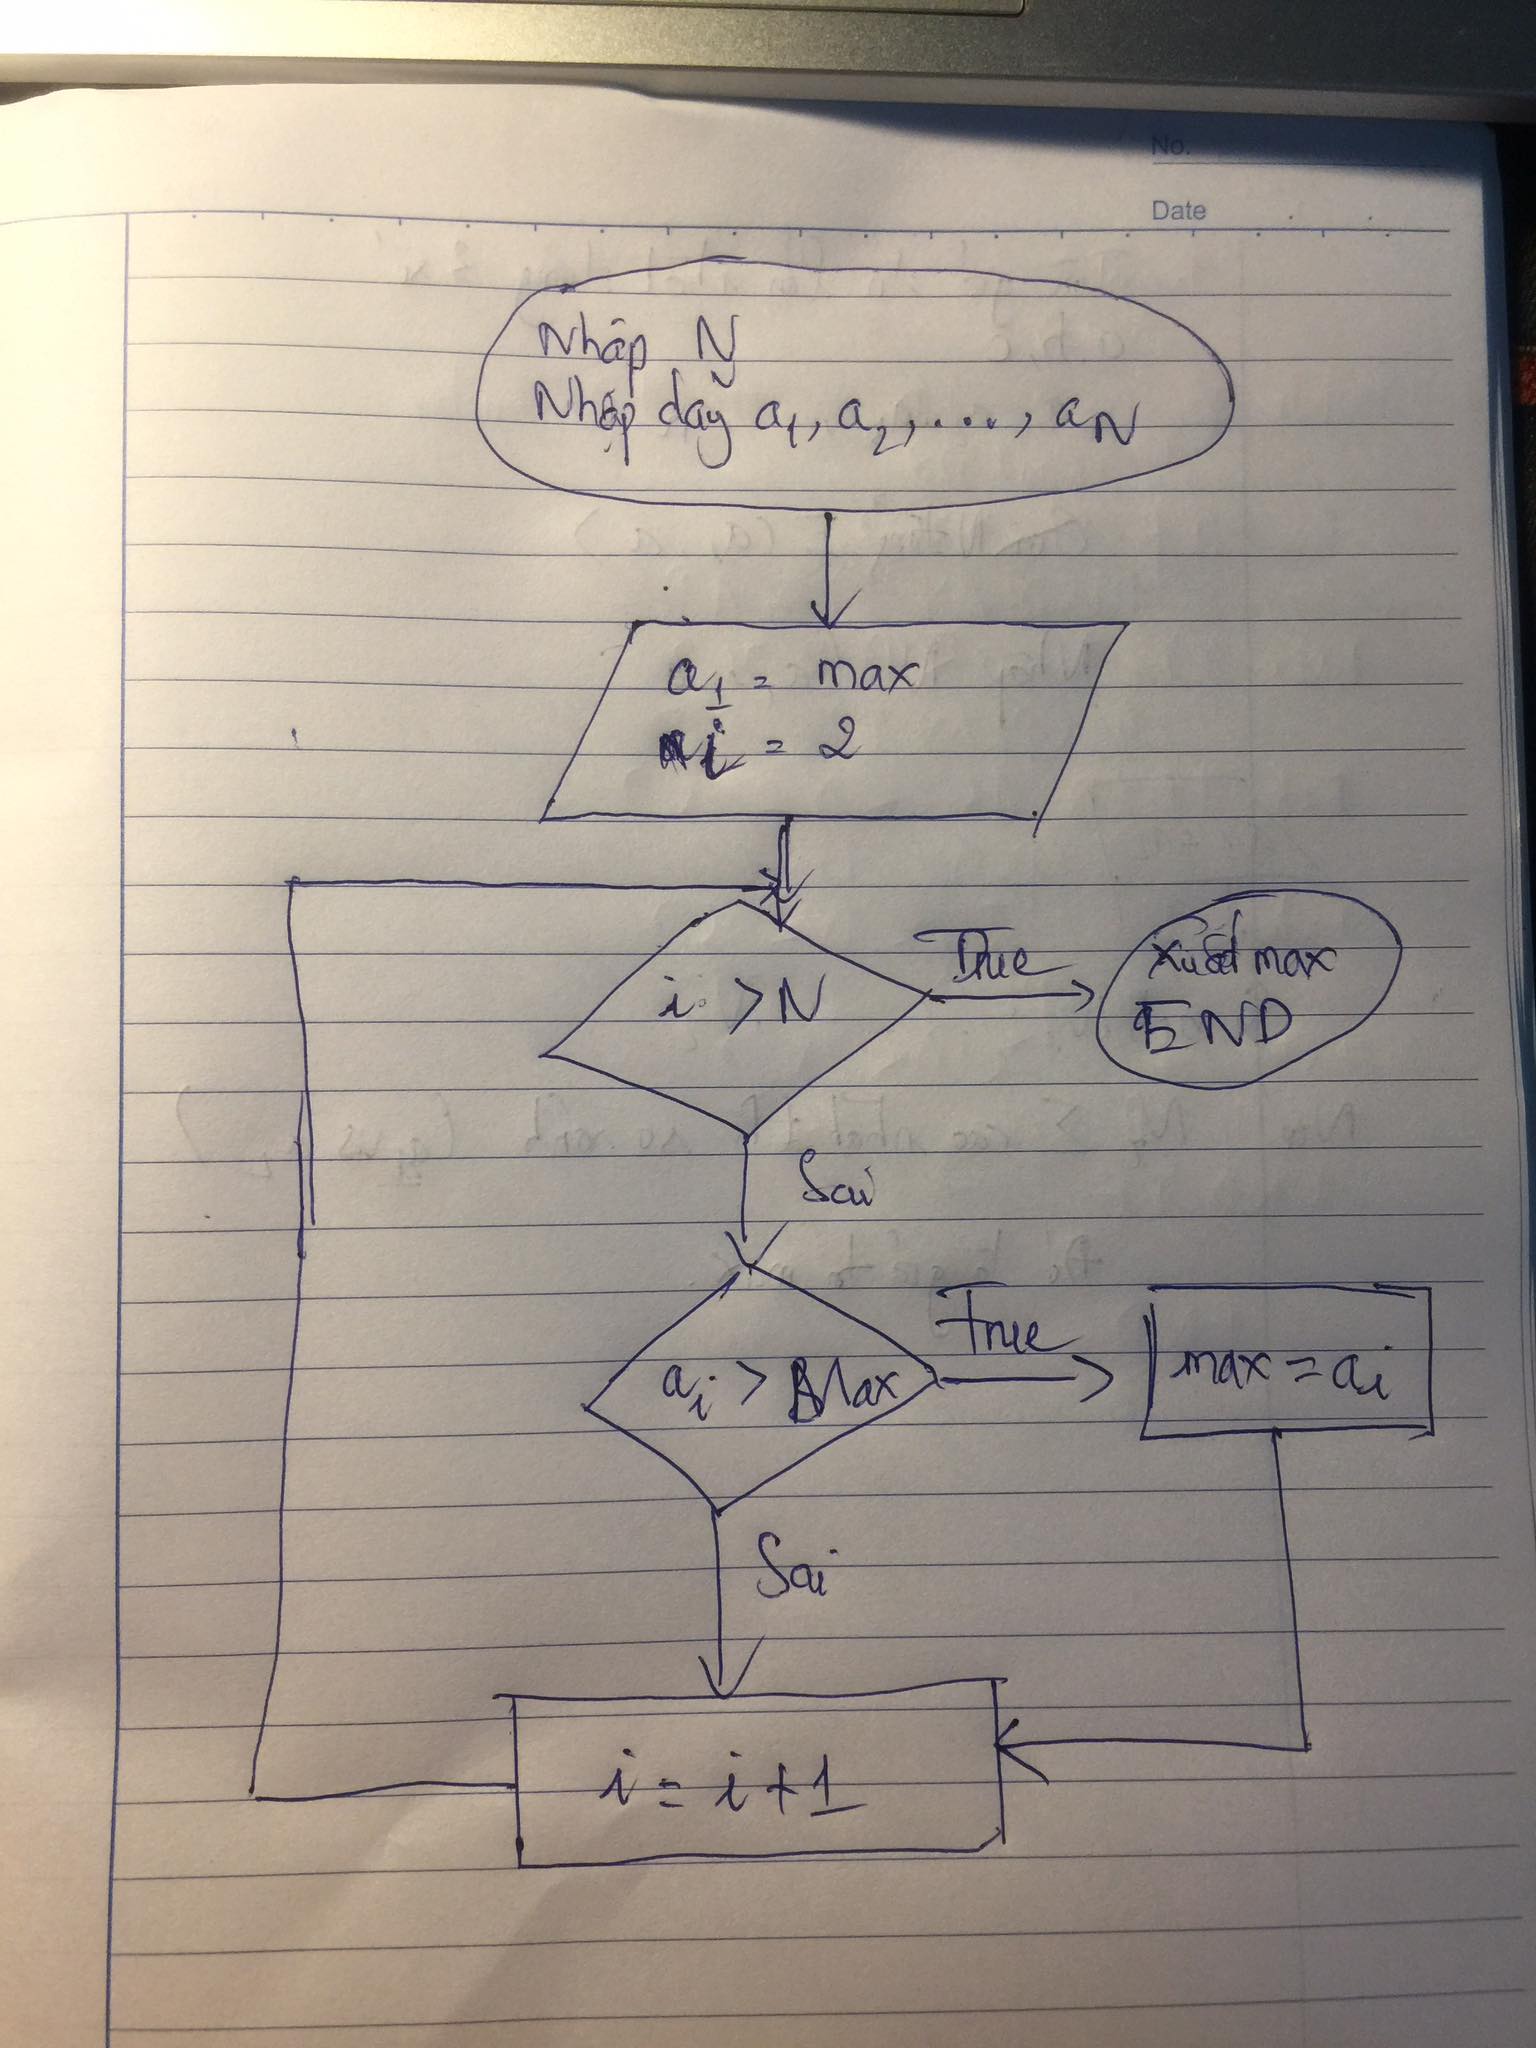 No.
Date
Nhập N
Nhập dãy a1, a2, ..., aN
a1 = max
i = 2
i > N
True
Xuất max
END
Sai
ai > Max
True
max = ai
Sai
i = i + 1